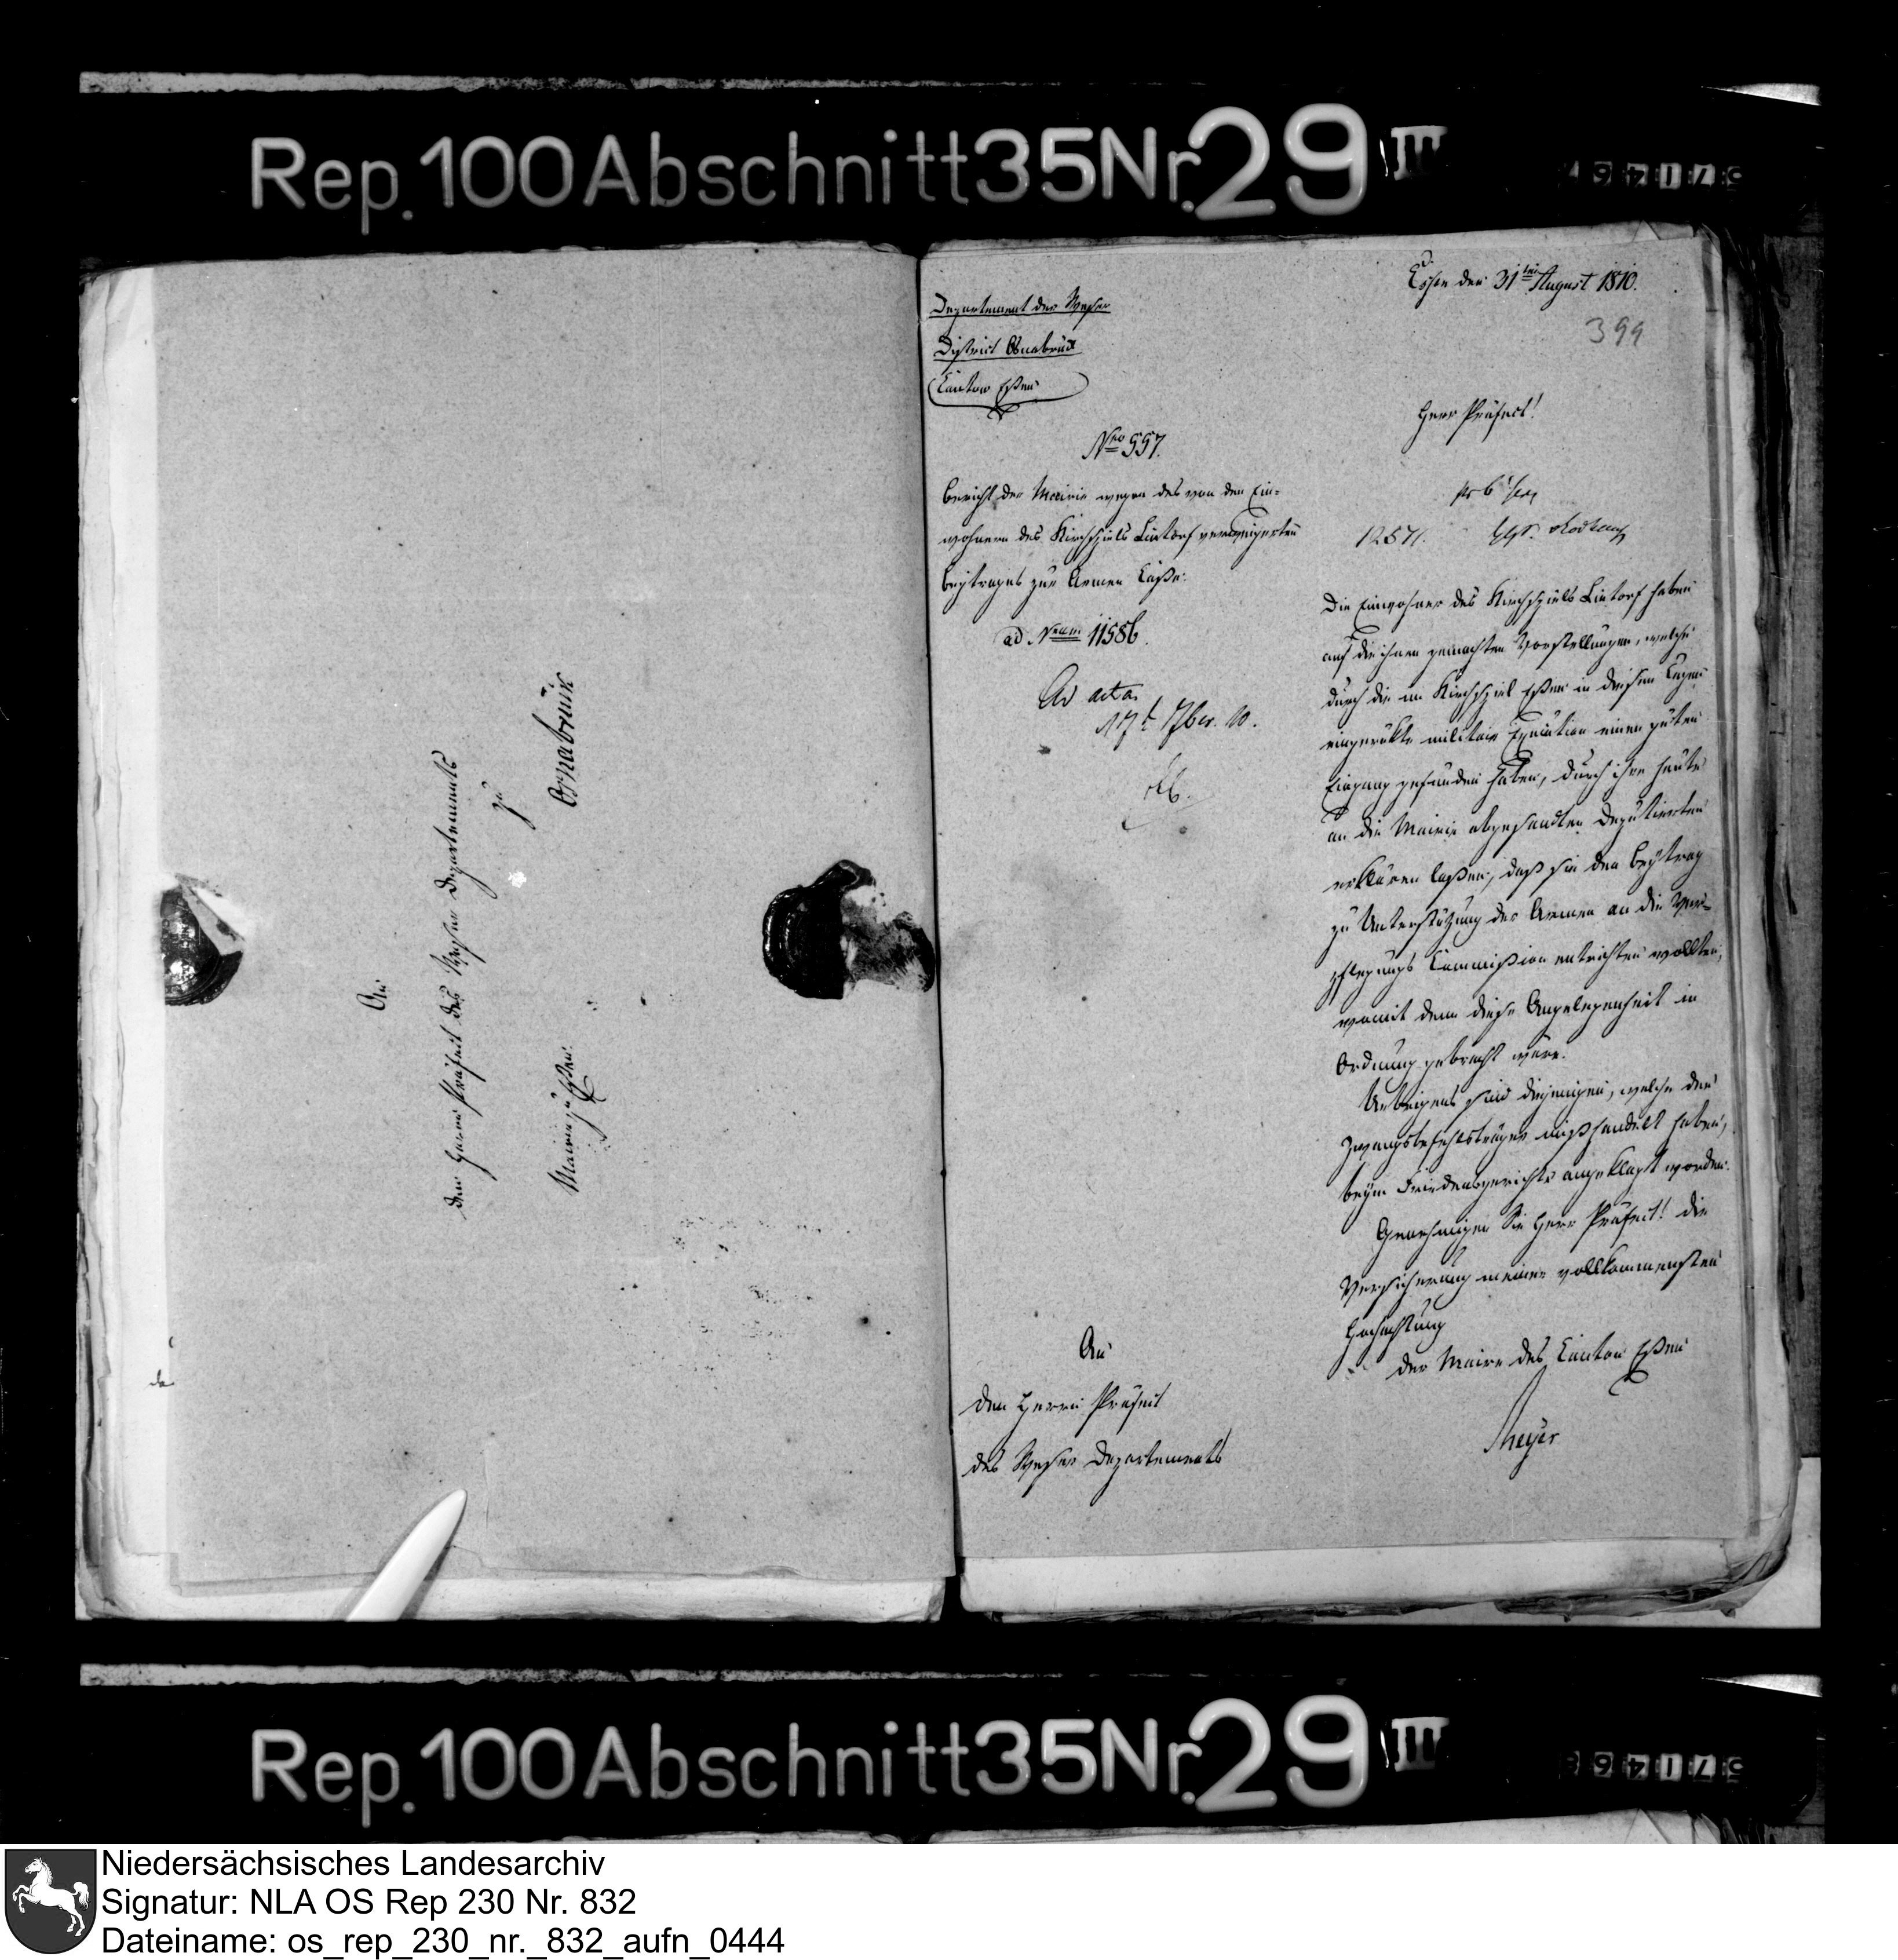 Rep. 100 Abschnitt 35 Nr. 29 III
An
den Herrn Präfect des Weser Departements
zu
Osnabrück
Mairie zu Eßen.
Essen den 31ten August 1810.
399
Departement der Weser
District Osnabrück
Canton Eßen
Nro 557.
Bericht der Mairie wegen des von den Ein-
wohnern des Kirchspiels Lintorf verweigerten
Beytrages zur Armen Casse.
ad Nrum 11586.
Ad acta
17t 7ber. 10.
Herr Präfect!
pr 6
1257
Die Einwohner des Kirchspiels Lintorf haben
auf die ihnen gemachten Vorstellungen, welche
durch die im Kirchspiel Eßen in diesen Tagen
eingerückte militair Execution einen guten
Eingang gefunden haben, durch ihre heute
an die Mairie abgesandten Deputierten
erklären laßen, daß sie den Beytrag
zu Unterstützung der Armen an die Ver-
pflegungs Commißion entrichten wollten,
womit denn diese Angelegenheit in
Ordnung gebracht wäre.
Uebrigens sind diejenigen, welche den
Zwangsbefehlsträger mißhandelt haben,
beym Friedensgerichte angeklagt worden.
Genehmigen Sie Herr Präfect! die
Versicherung meiner vollkommensten
Hochachtung
Der Maire des Canton Eßen
Meyer
An
den Herrn Präfect
des Weser Departements
Rep. 100 Abschnitt 35 Nr. 29 III
Niedersächsisches Landesarchiv
Signatur: NLA OS Rep 230 Nr. 832
Dateiname: os_rep_230_nr._832_aufn_0444